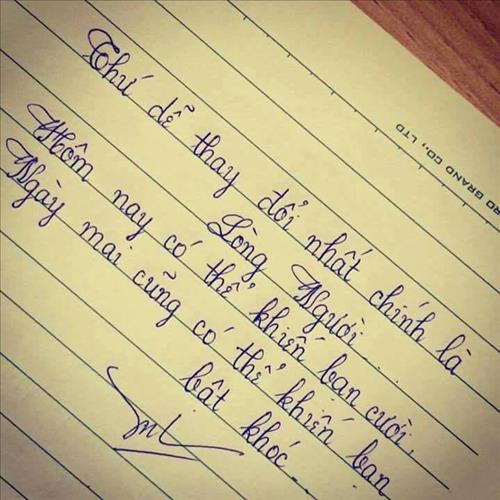 Thứ dễ thay đổi nhất chính là
Lòng Người...
Hôm nay có thể khiến bạn cười,
Ngày mai cũng có thể khiến bạn
bật khóc...
RD GRAND CO., LTD